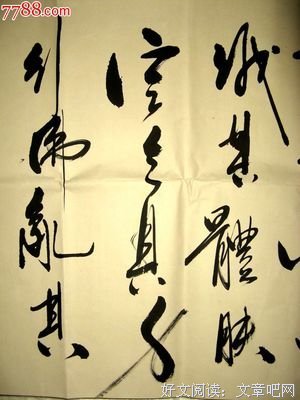 7788.com
餓其體肤
空乏其身
行拂亂其
好文阅读：文章吧网